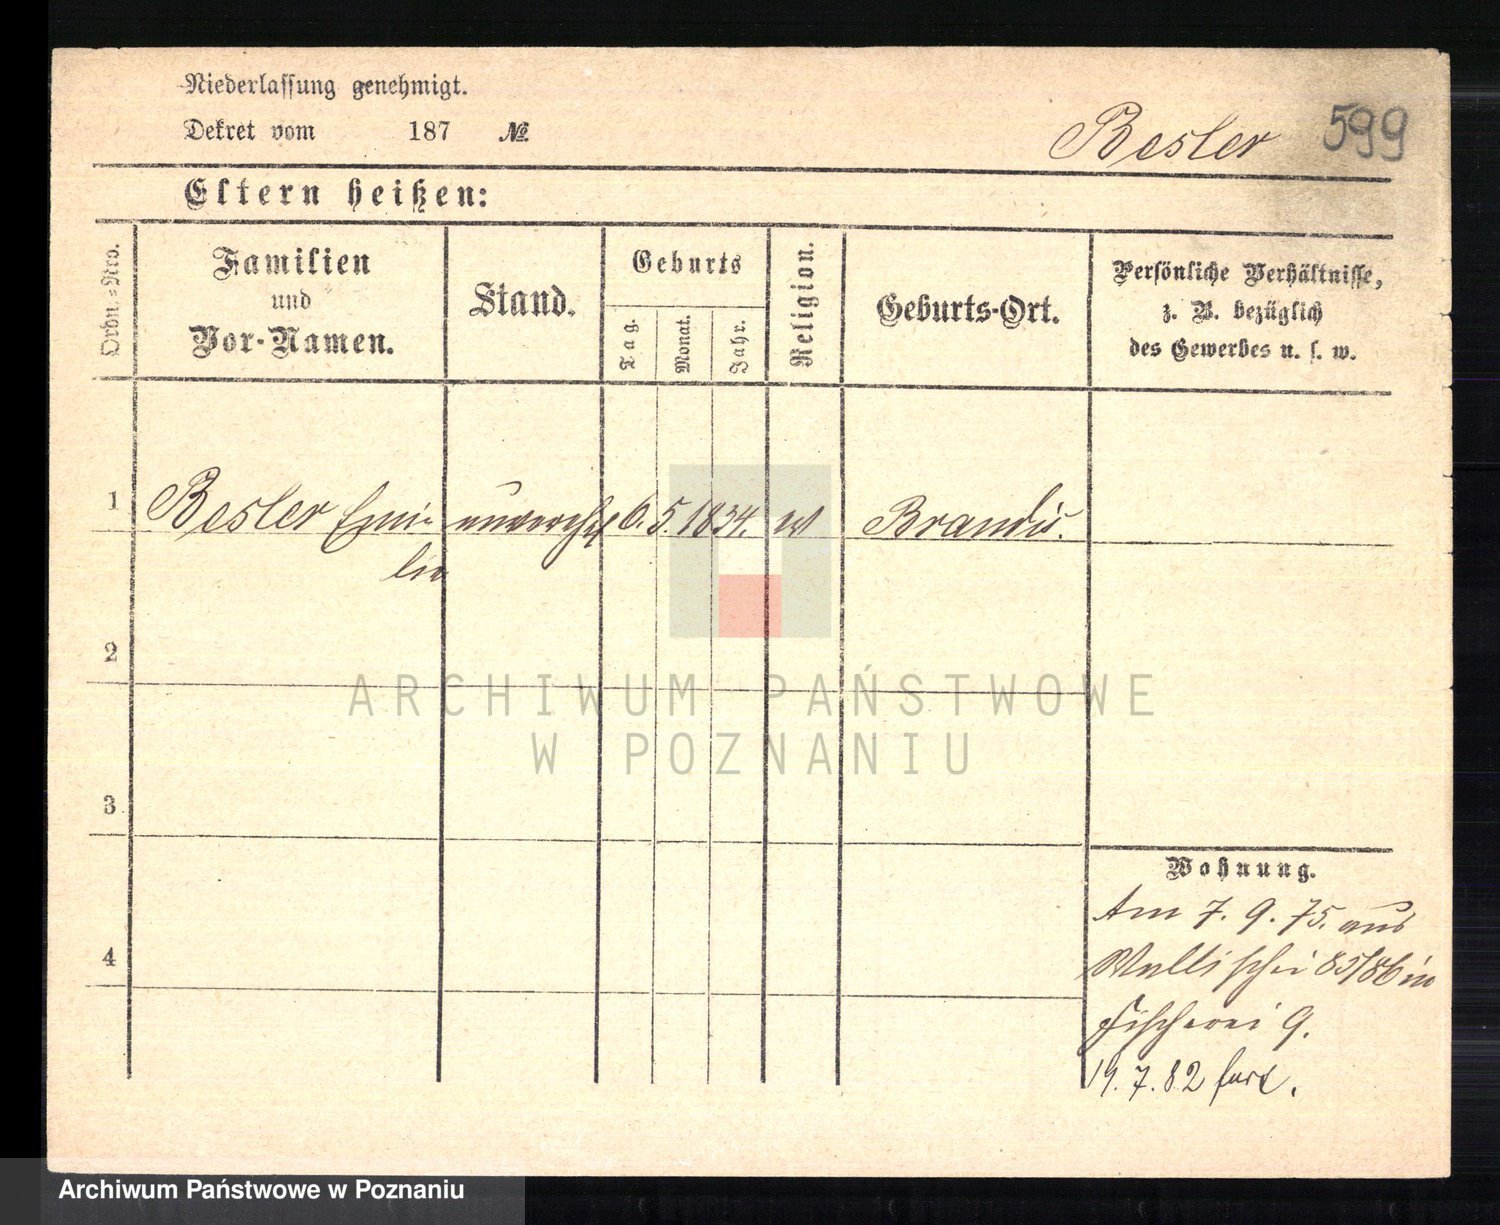 Niederlassung genehmigt.
Dekret vom 187 №
Besler 599
Eltern heißen:
Ordn.=Nro.
Familien
und
Vor-Namen.
Stand.
Geburts
Tag.
Monat.
Jahr.
Religion.
Geburts-Ort.
Persönliche Verhältnisse,
z. B. bezüglich
des Gewerbes u. s. w.
1 Besler Emi- unverehl 6. 5. 1834. Brandis.
lie
2
ARCHIWUM PAŃSTWOWE
W POZNANIU
3
Wohnung.
Am 7. 9. 75. aus
4
Wallischei 85/86 in
Fischerei 9.
19. 7. 82 fort.
Archiwum Państwowe w Poznaniu